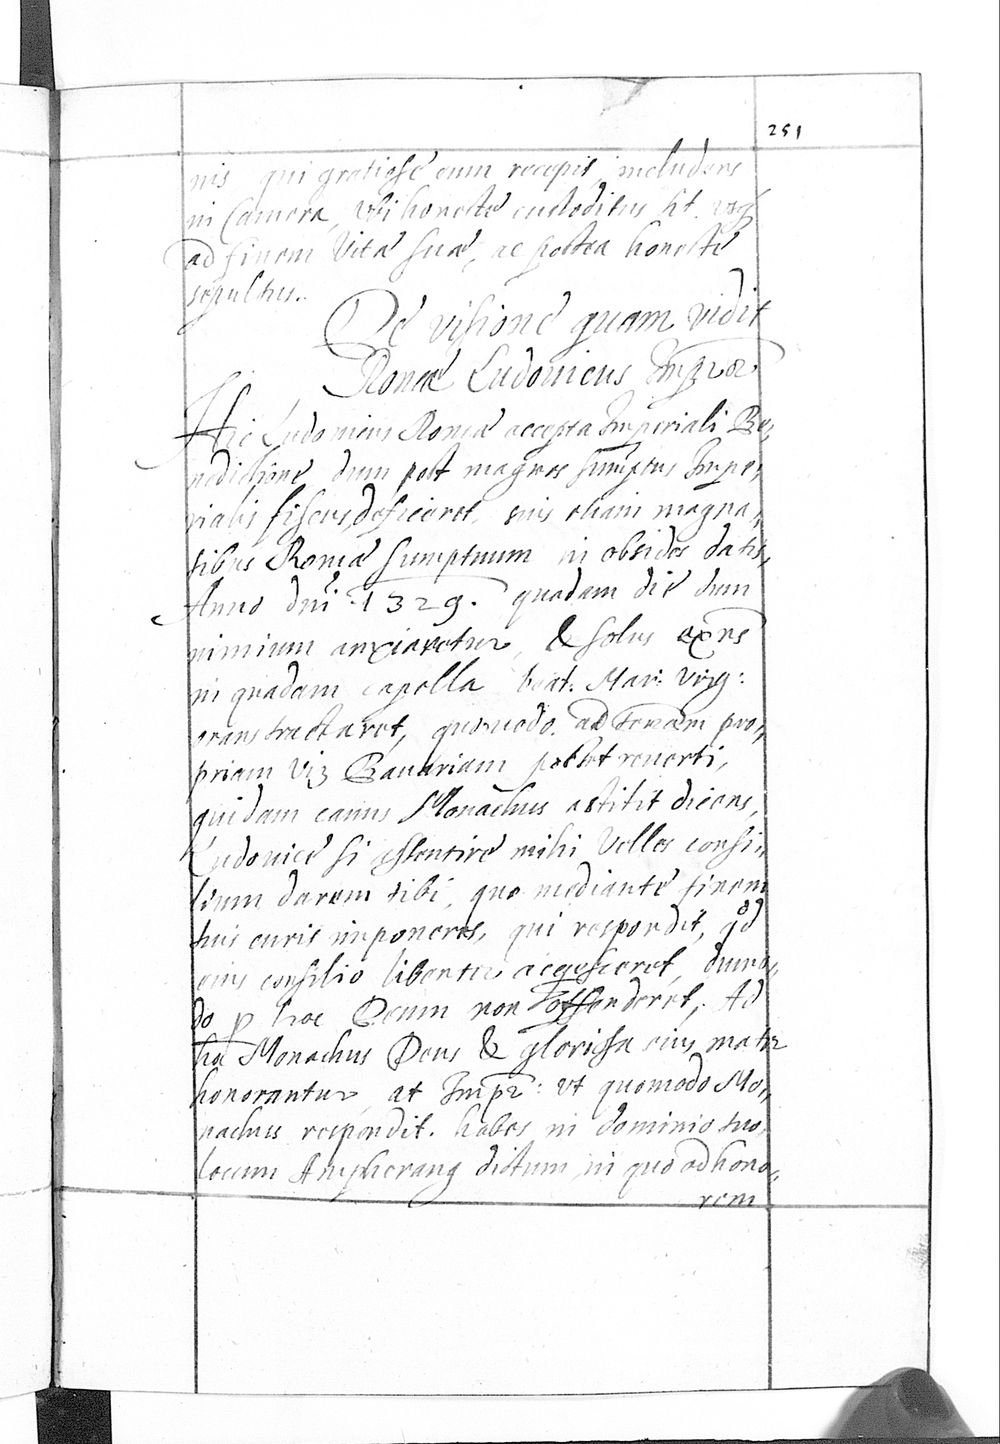 251
nis qui gratiose eum recepit, includens
in Camera, vbi honeste custoditus st. vsq
ad finem Vitæ suæ, ac postea honeste
sepultus.
De visione quam vidit
Romæ Ludovicus Impror.
Hic Ludovicus Romæ accepta Imperiali Be,,
nedictione, dum post magnos sumptus Impe,,
rialis fiscus deficeret, suis etiam magna,,
tibus Romæ sumptuum in obsides datis,
Anno dni 1329. quadam die dum
nimium anxiaretur, & solus exns
in quadam capella beat: Mar: Virg:
orans tractaret, quomodo ad terram pro,,
priam viz Bauariam posset reuerti,
quidam canus Monachus astitit dicens,
Ludouice si assentire mihi velles consi,,
lium darem tibi, quo mediante finem
tuis curis imponeres, qui respondit, qd
eius consilio libenter acquiesceret, dummo,,
do p hoc Deum non offenderet, Ad
hæ Monachus Deus & gloriosa eius matr
honorantur, at Impr: vt quomodo Mo,,
nachus respondit. habes in dominio tuo,
locum Ampherang dictum, in quo ad hono,,
rem